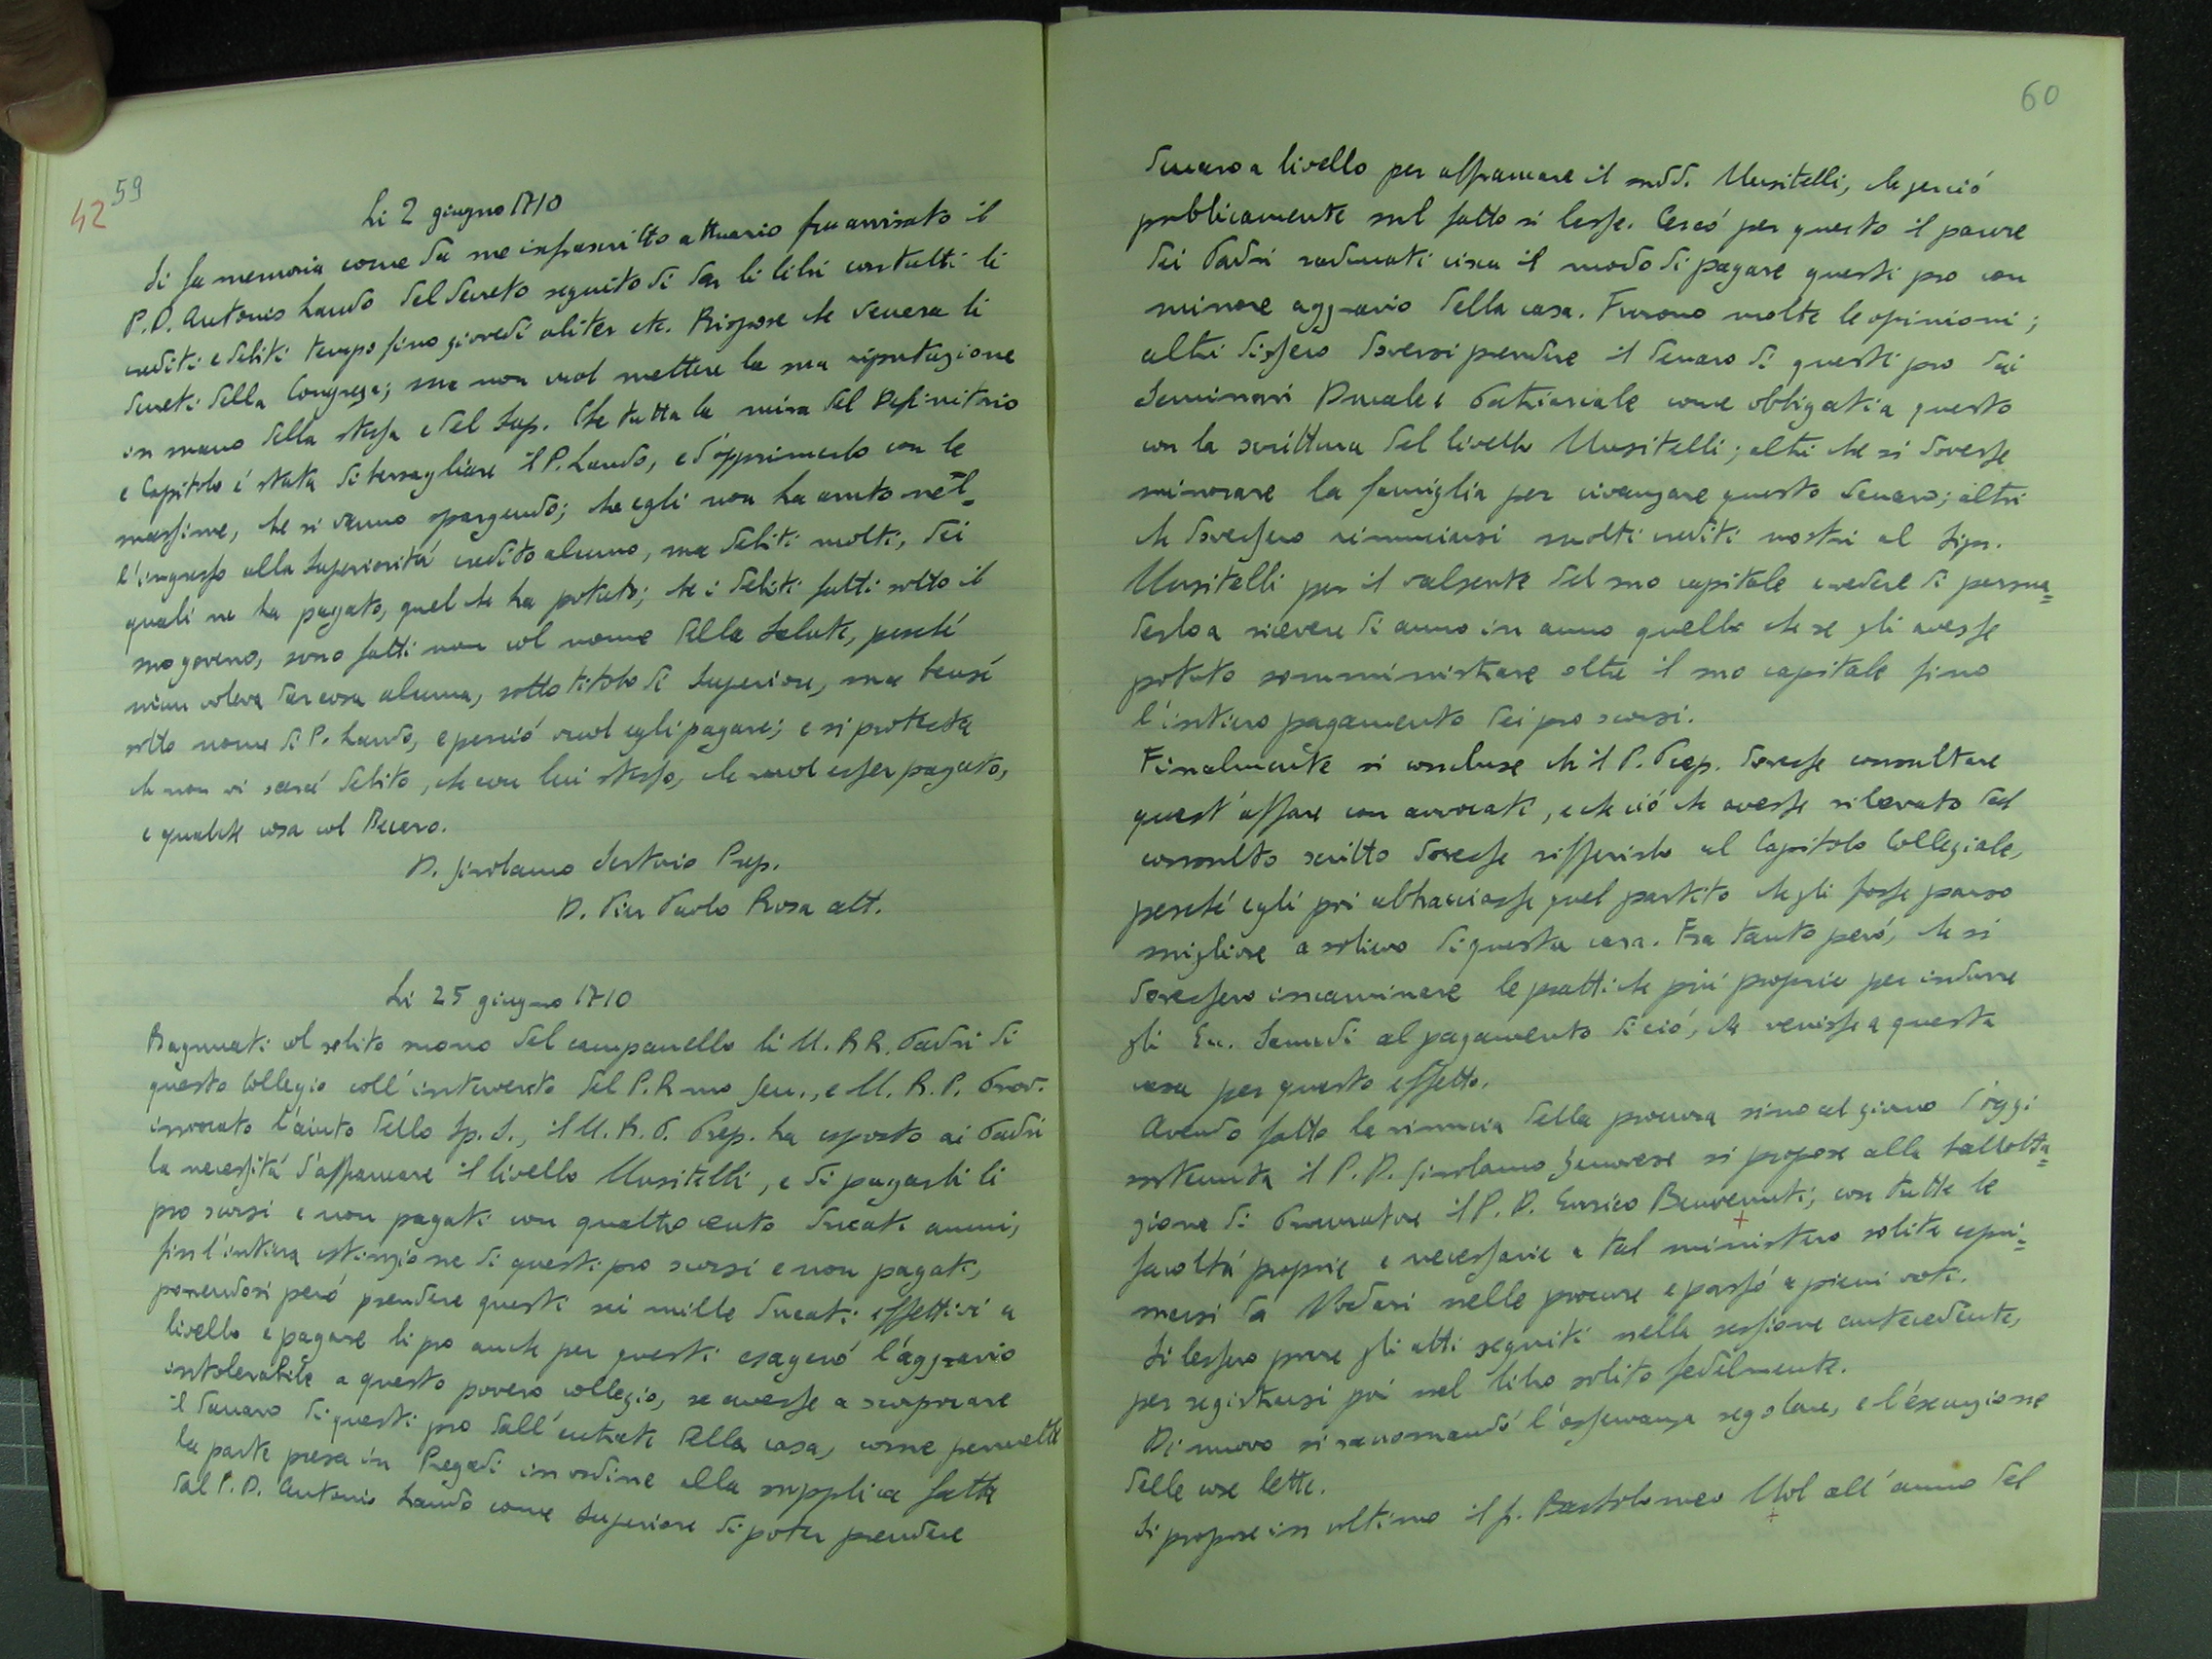 59
42
Li 2 giugno 1710
Si fa memoria come da me infrascritto attuario fu avvisato il
P.D. Antonio Lando del decreto seguito di dar li libri con tutti li
crediti e debiti tempo fino giovedí aliter etc. Rispose che venera li
decreti della Congreg.; ma non vuol mettere la sua riputazione
in mano della stessa e del Sup. Che tutta la mira del Definitorio
e Capitolo é stata di bersagliare il P. Lando, e d'opprimerlo con le
massime, che si vanno spargendo; che egli non ha avuto nel-
l'ingresso alla Superiorità credito alcuno, ma debiti molti, dei
quali ne ha pagato, quel che ha potuto; che i debiti fatti sotto il
suo governo, sono fatti non col nome della Salute, perché
niun voleva dar cosa alcuna, sotto titolo di Superiore, ma bensí
sotto nome di P. Lando, e perció vuol egli pagare; e si protesta
che non vi sará debito, che con lui stesso, che vuol esser pagato,
e qualche cosa col Recero.
D. Girolamo Sertorio Prep.
D. Pier Paolo Rosa att.
Li 25 giugno 1710
Ragunati col solito suono del campanello li M. RR. Padri di
questo Collegio coll'intervento del P. Rmo Gen., e M. R. P. Prov.
invocato l'aiuto dello Sp. S., il M. R. P. Prep. ha esposto ai Padri
la necessitá d'affrancare il livello Musitelli, e di pagarli li
pro scorsi e non pagati con quattro cento ducati annui,
fin l'intiera estinzione di questi pro scorsi e non pagati,
ponendosi peró prendere questi sei mille ducati effettivi a
livello e pagare li pro anche per questi esageró l'aggravio
intolerabile a questo povero collegio, se avesse a scorporare
il danaro di questi pro dall'entrate della casa, come permette
la parte presa in Pregadi in ordine alla supplica fatta
dal P. D. Antonio Lando come Superiore di poter prendere
60
denaro a livello per affrancare il sudd. Musitelli, che perció
pubblicamente sul fatto si lesse. Cercó per questo il parere
dei Padri radunati circa il modo di pagare questi pro con
minore aggravio della casa. Furono molte le opinioni;
altri dissero doversi prendere il denaro di questi pro dai
Seminari Ducale e Patriarcale come obbligati a questo
con la scrittura del livello Musitelli; altri che si dovesse
minorare la famiglia per civanzare questo denaro; altri
che dovessero rinunciarsi molti crediti nostri al Sign.
Musitelli per il valsente del suo capitale e vedere di persua=
derlo a ricevere di anno in anno quello che se gli avesse
potuto somministrare oltre il suo capitale fino
l'intiero pagamento dei pro scorsi.
Finalmente si concluse che il P. Prep. dovesse consultare
quest'affare con avvocati, e che ció che avesse rilevato dal
consulto scritto dovesse rifferirlo al Capitolo Collegiale,
perché egli poi abbracciasse quel partito che gli fosse parso
migliore a solievo di questa casa. Fra tanto peró, che si
dovessero incaminare le prattiche piú proprie per indurre
gli Ec. Semedi al pagamento di ció, che venisse a questa
casa per questo effetto.
Avendo fatto la rinuncia della procura sino al giorno d'oggi
sostenuta il P. D. Girolamo Genovese si propose alla ballotta=
zione di Procuratore il P. D. Enrico Benvenuti; con tutte le
facoltá proprie e necessarie a tal ministero solite espri=
mersi da Nodari nelle procure e passó a pieni voti.
Si lessero pure gli atti seguiti nella sessione antecedente,
per registrarsi poi nel libro solito fedelmente.
Di nuovo si raccomandó l'osservanza regolare, e l'esecuzione
delle cose lette.
Si propose in ultimo il f. Bartolomeo Mol all'anno del